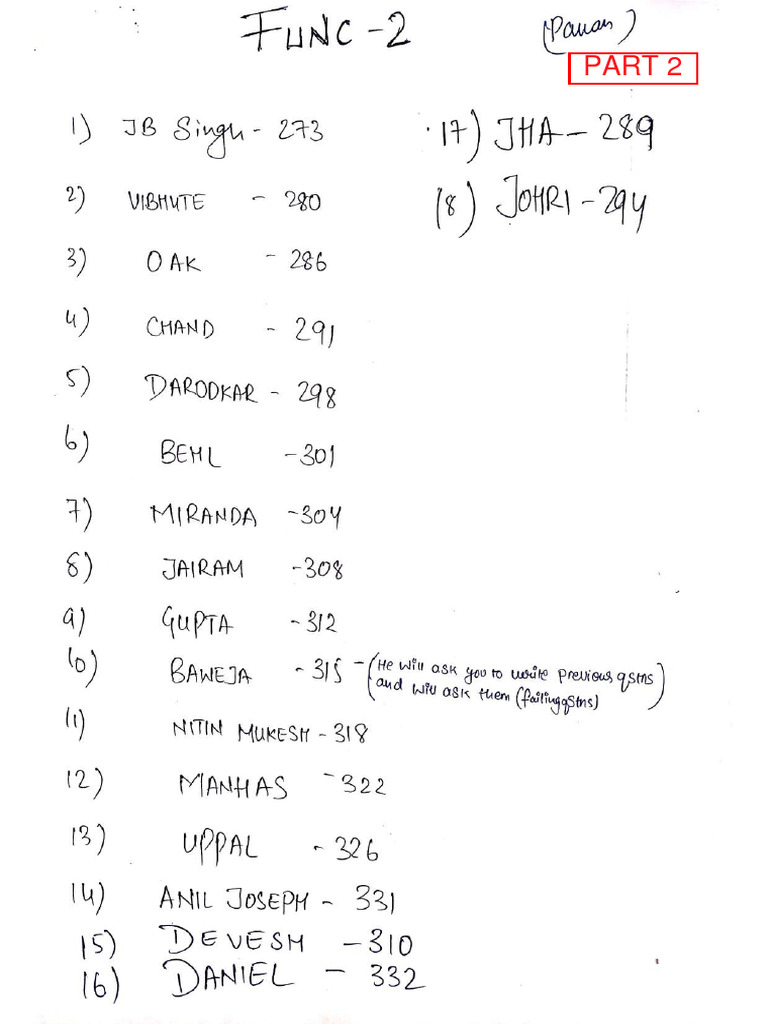 FUNC-2
(Pawan)
PART 2
1) JB Singh - 273
2) VIBHUTE - 280
3) OAK - 286
4) CHAND - 291
5) DARODKAR - 298
6) BEHL - 301
7) MIRANDA - 304
8) JAIRAM - 308
9) GUPTA - 312
10) BAWEJA - 315 - (He will ask you to write previous qstns
and will ask them (failing qstns)
11) NITIN MUKESH - 318
12) MANHAS - 322
13) UPPAL - 326
14) ANIL JOSEPH - 331
15) DEVESH - 310
16) DANIEL - 332
17) JHA - 289
18) JOHRI - 294